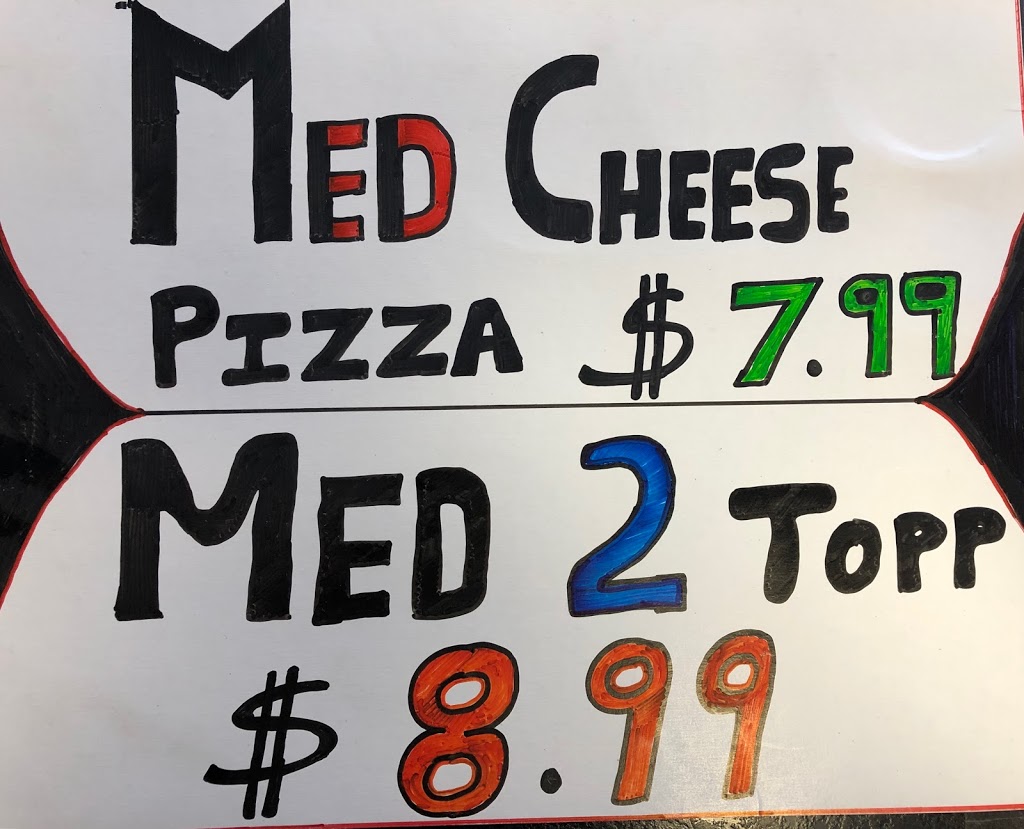 MED CHEESE
PIZZA $ 7.99
MED 2 TOPP
$ 8.99